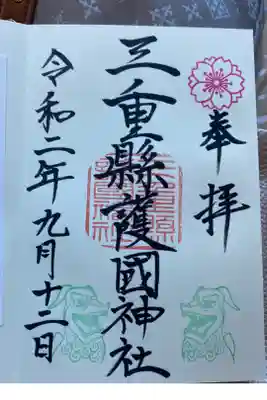 奉拝
三重縣護國神社
令和二年九月十二日